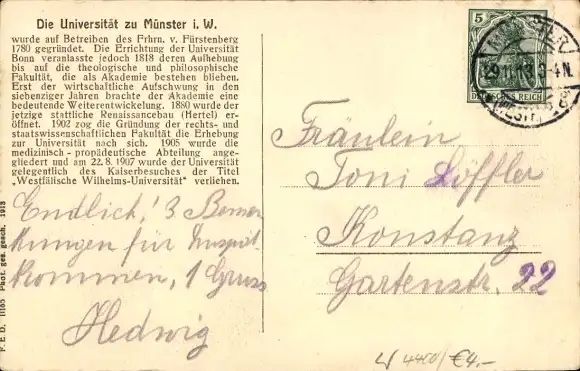 Die Universität zu Münster i. W.
wurde auf Betreiben des Frhrn. v. Fürstenberg
1780 gegründet. Die Errichtung der Universität
Bonn veranlasste jedoch 1818 deren Aufhebung
bis auf die theologische und philosophische
Fakultät, die als Akademie bestehen blieben.
Erst der wirtschaftliche Aufschwung in den
siebenziger Jahren brachte der Akademie eine
bedeutende Weiterentwickelung. 1880 wurde der
jetzige stattliche Renaissancebau (Hertel) er-
öffnet. 1902 zog die Gründung der rechts- und
staatswissenschaftlichen Fakultät die Erhebung
zur Universität nach sich. 1905 wurde die
medizinisch - propädeutische Abteilung ange-
gliedert und am 22. 8. 1907 wurde der Universität
gelegentlich des Kaiserbesuches der Titel
„Westfälische Wilhelms-Universität" verliehen.
Endlich! 3 Bemer
kungen für
kommen, 1 Gruss
Hedwig
F. E. D. 11165 Phot. ges. gesch. 1913
5
DEUTSCHES REICH
MÜNSTER
29.11.13. 3-4N.
(WESTF.)
Fräulein
Toni Löffler
Konstanz
Gartenstr. 22
4400/€4.-